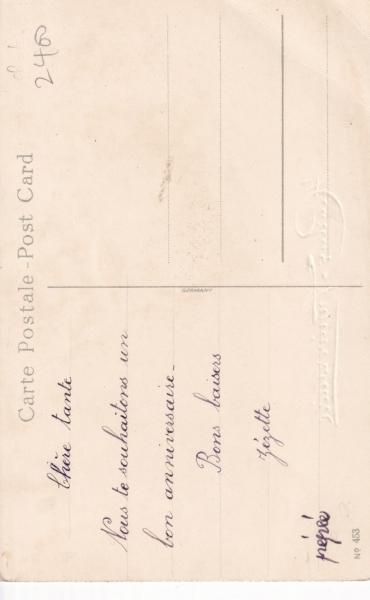 Carte Postale - Post Card
240
GERMANY
Chère tante
Nous te souhaitons un
bon anniversaire -
Bons baisers
Zézette
pépée
No 453